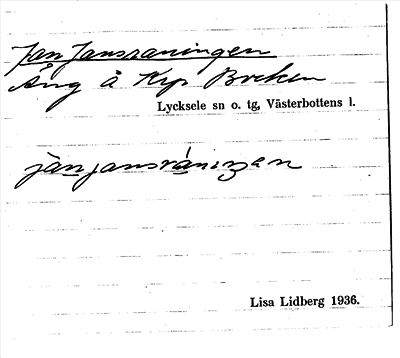 Jan Jansraningen
Äng å Krp Breken
Lycksele sn o. tg, Västerbottens l.
jan jansråningen
Lisa Lidberg 1936.